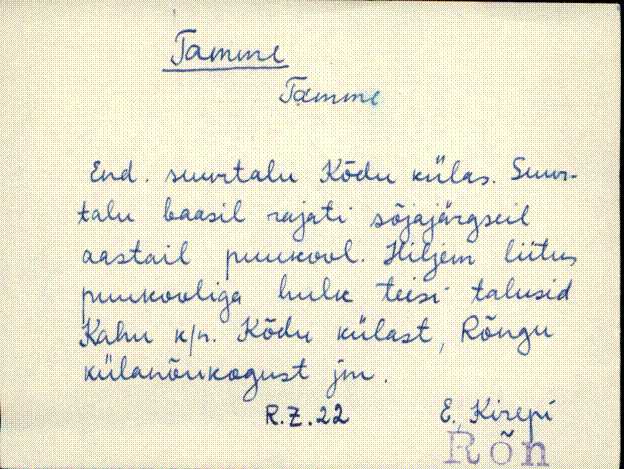 Tamme
Tamme
End. suurtalu Kõdu külas. Suur-
talu baasil rajati sõjajärgseil
aastail puukool. Hiljem liitus
puukooliga hulk teisi talusid
Kahu k/n. Kõdu külast, Rõngu
külanõukogust jm.
R.Z.22 E. Kirepi
Rõn